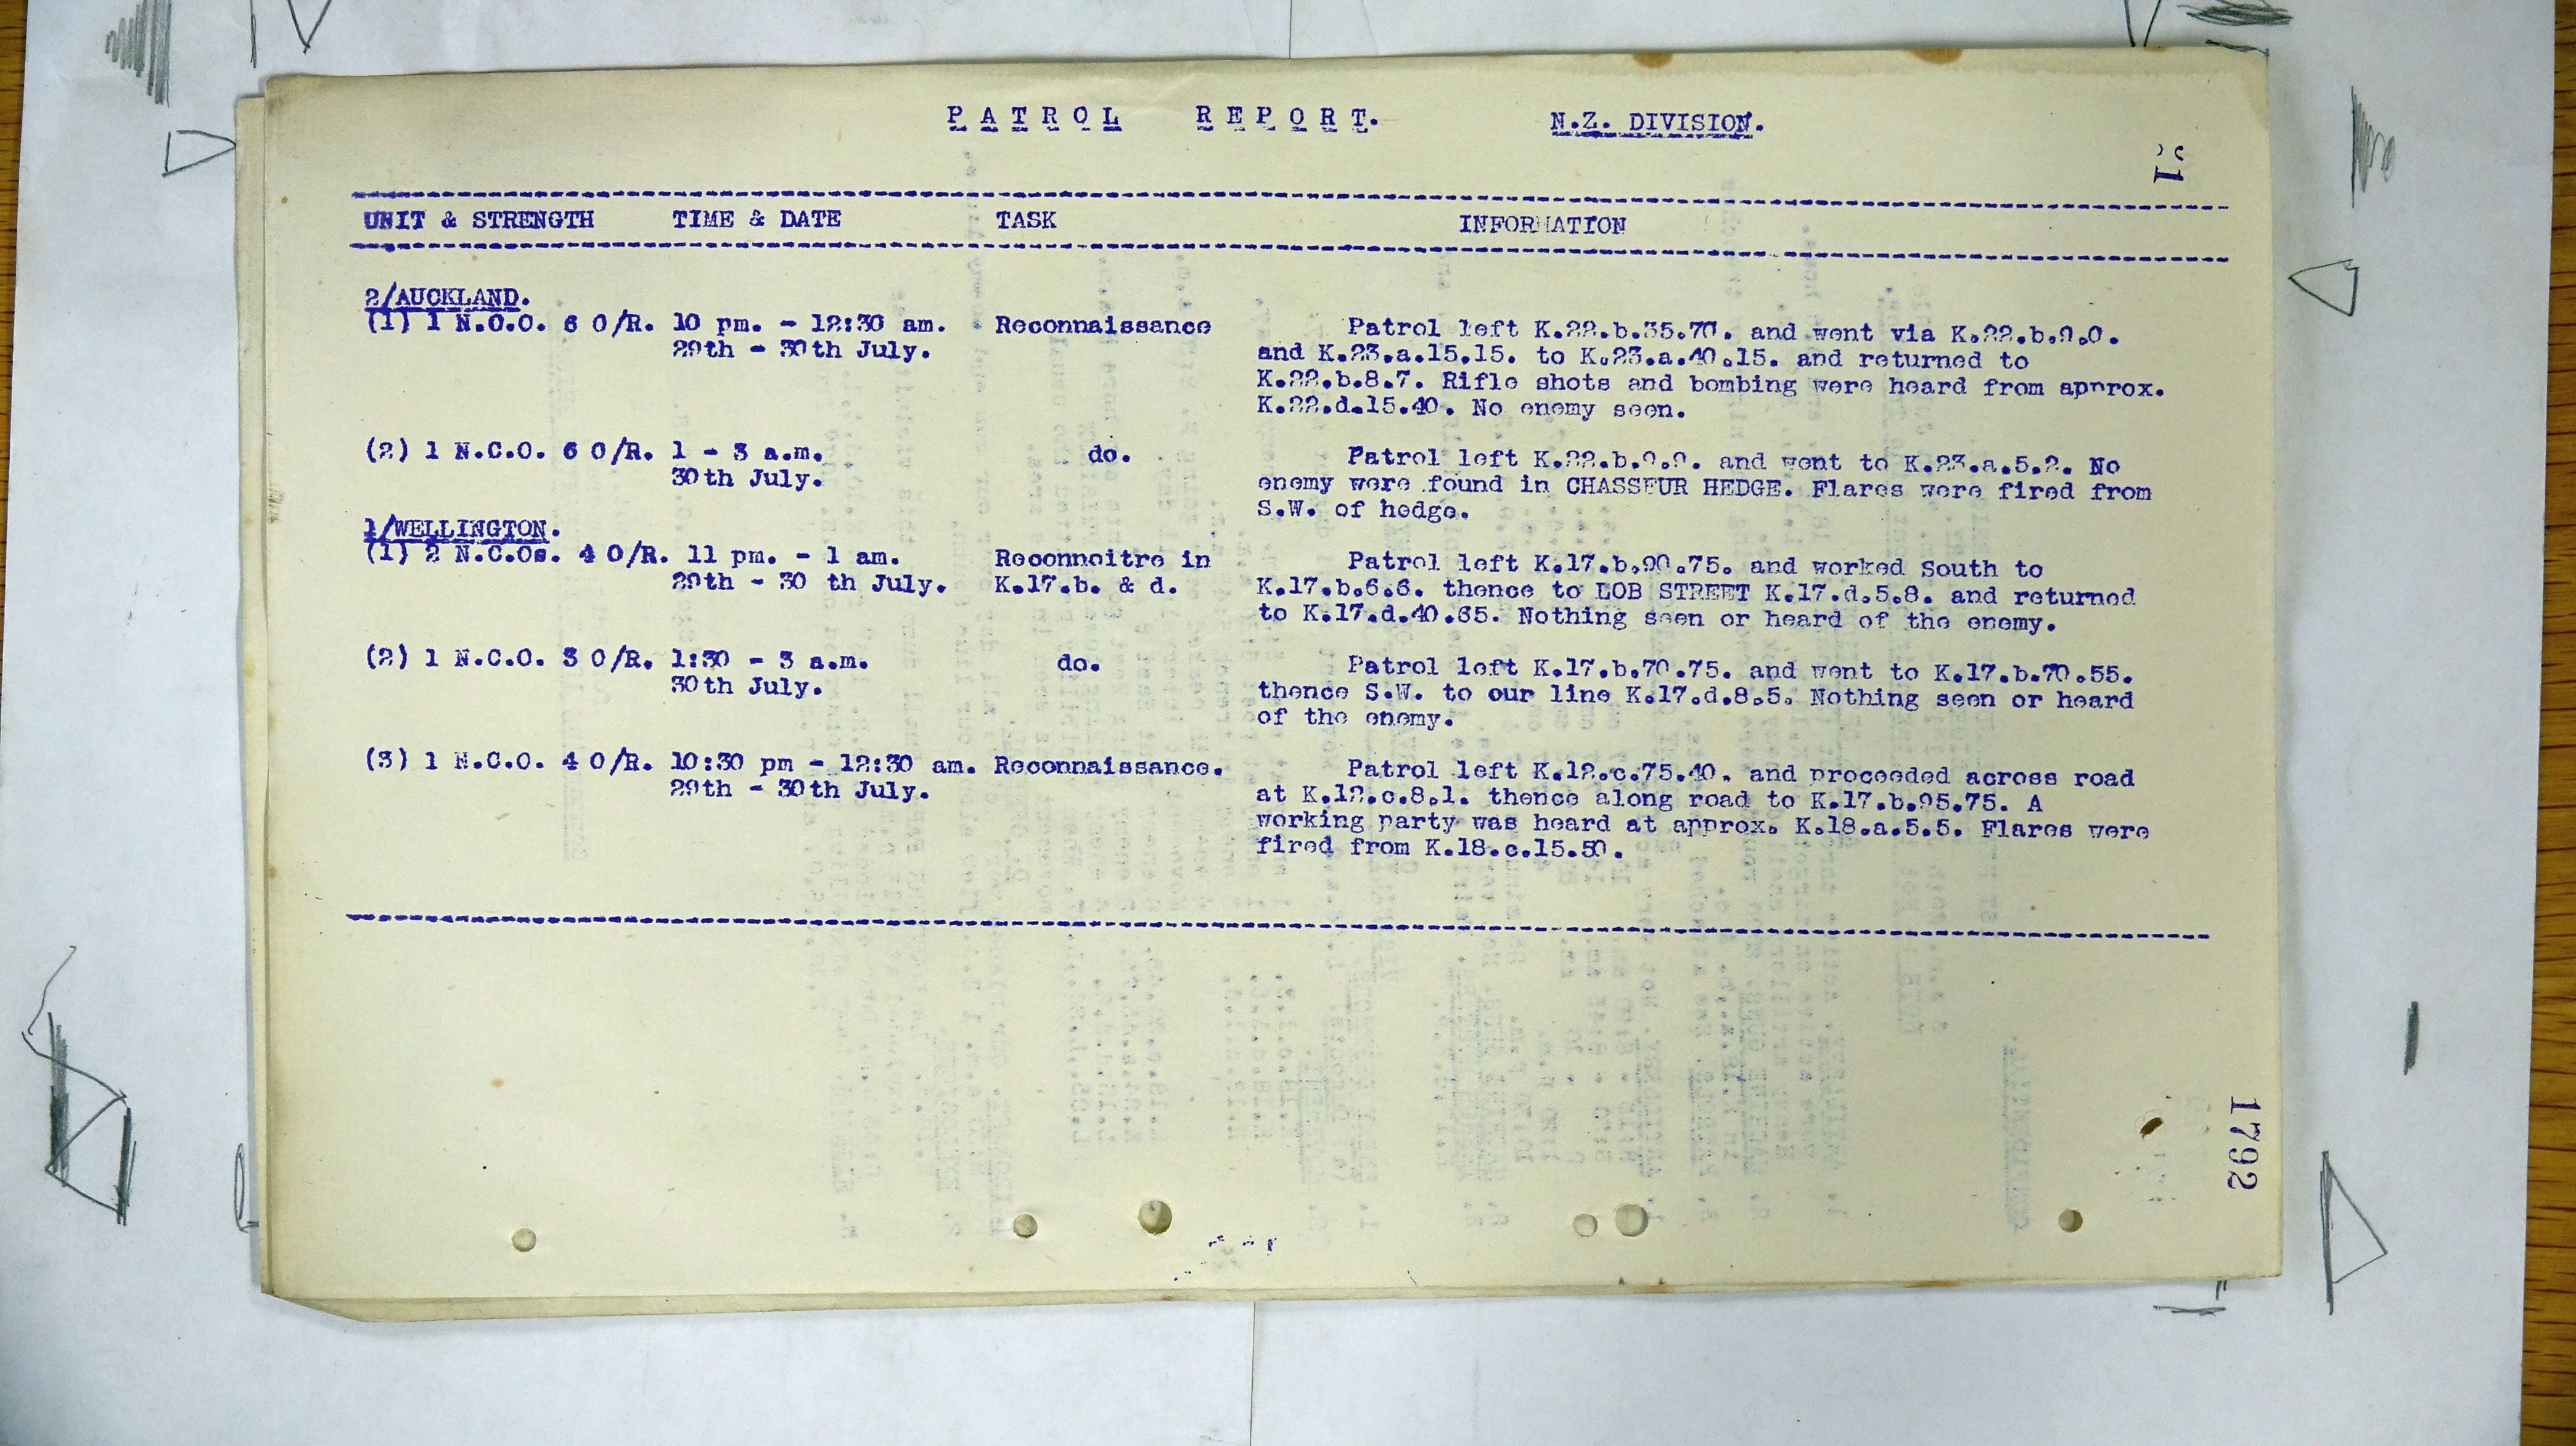 PATROL REPORT. N.Z. DIVISION.
UNIT & STRENGTH TIME & DATE TASK INFORMATION
2/AUCKLAND.
(1) 1 N.C.O. 6 O/R. 10 pm. - 12:30 am. Reconnaissance
29th - 30th July.
Patrol left K.22.b.35.70. and went via K.22.b.9.0.
and K.23.a.15.15. to K.23.a.40.15. and returned to
K.22.b.8.7. Rifle shots and bombing were heard from approx.
K.22.d.15.40. No enemy seen.
(2) 1 N.C.O. 6 O/R. 1 - 3 a.m. do.
30th July.
Patrol left K.22.b.9.9. and went to K.23.a.5.2. No
enemy were found in CHASSEUR HEDGE. Flares were fired from
S.W. of hedge.
1/WELLINGTON.
(1) 2 N.C.Os. 4 O/R. 11 pm. - 1 am. Reconnoitre in
29th - 30 th July. K.17.b. & d.
Patrol left K.17.b.90.75. and worked South to
K.17.b.6.6. thence to LOB STREET K.17.d.5.8. and returned
to K.17.d.40.65. Nothing seen or heard of the enemy.
(2) 1 N.C.O. 3 O/R. 1:30 - 3 a.m. do.
30th July.
Patrol left K.17.b.70.75. and went to K.17.b.70.55.
thence S.W. to our line K.17.d.8.5. Nothing seen or heard
of the enemy.
(3) 1 N.C.O. 4 O/R. 10:30 pm - 12:30 am. Reconnaissance.
29th - 30th July.
Patrol left K.12.c.75.40. and proceeded across road
at K.12.c.8.1. thence along road to K.17.b.95.75. A
working party was heard at approx. K.18.a.5.5. Flares were
fired from K.18.c.15.50.
1792